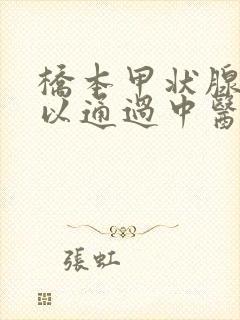 橋本甲状腺
以通過中醫
張虹